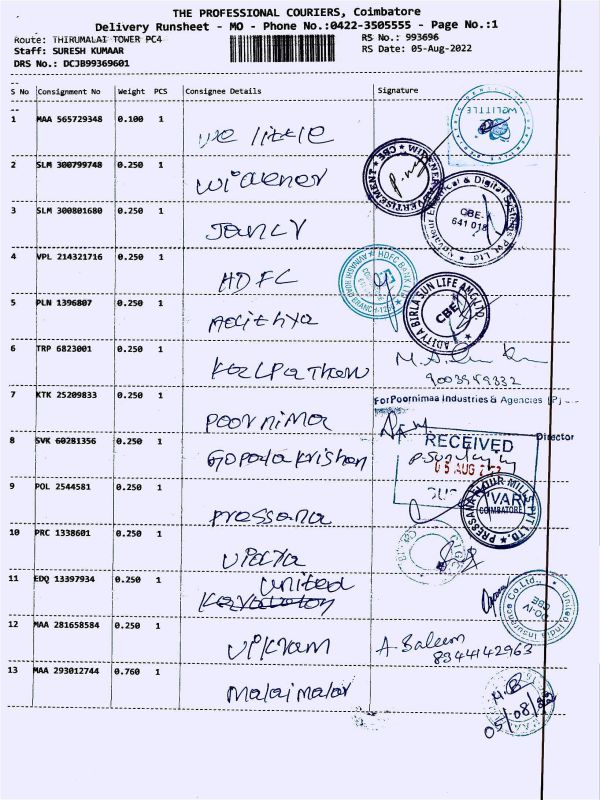 THE PROFESSIONAL COURIERS, Coimbatore
Delivery Runsheet - MO - Phone No.:0422-3505555 - Page No.:1
Route: THIRUMALAI TOWER PC4
RS No.: 993696
Staff: SURESH KUMAAR
RS Date: 05-Aug-2022
DRS No.: DCJB99369601
S No Consignment No Weight PCS Consignee Details Signature
1 MAA 565729348 0.100 1 we little
WELITTLE
2 SLM 300799748 0.250 1 widener
3 SLM 300801680 0.250 1
CBE-
641 018
4 VPL 214321716 0.250 1 HDFC
5 PLN 1396807 0.250 1 Adithya
ADITYA BIRLA SUN LIFE AMC LTD.
CBE
6 TRP 6823001 0.250 1
7 KTK 25209833 0.250 1 poornima
For Poornimaa Industries & Agencies (P)
Director
8 SVK 60281356 0.250 1 Gopala krishan
RECEIVED
05 AUG
9 POL 2544581 0.250 1 pressana
PRESSANA FLOUR MILLS PVT LTD.
COIMBATORE
10 PRC 1338601 0.250 1
11 EDQ 13397934 0.250 1 united
United India Insurance Co Ltd.,
12 MAA 281658584 0.250 1 vikram
A. Saleem
8344142963
13 MAA 293012744 0.760 1 malaimalar
M.B
05/08/22